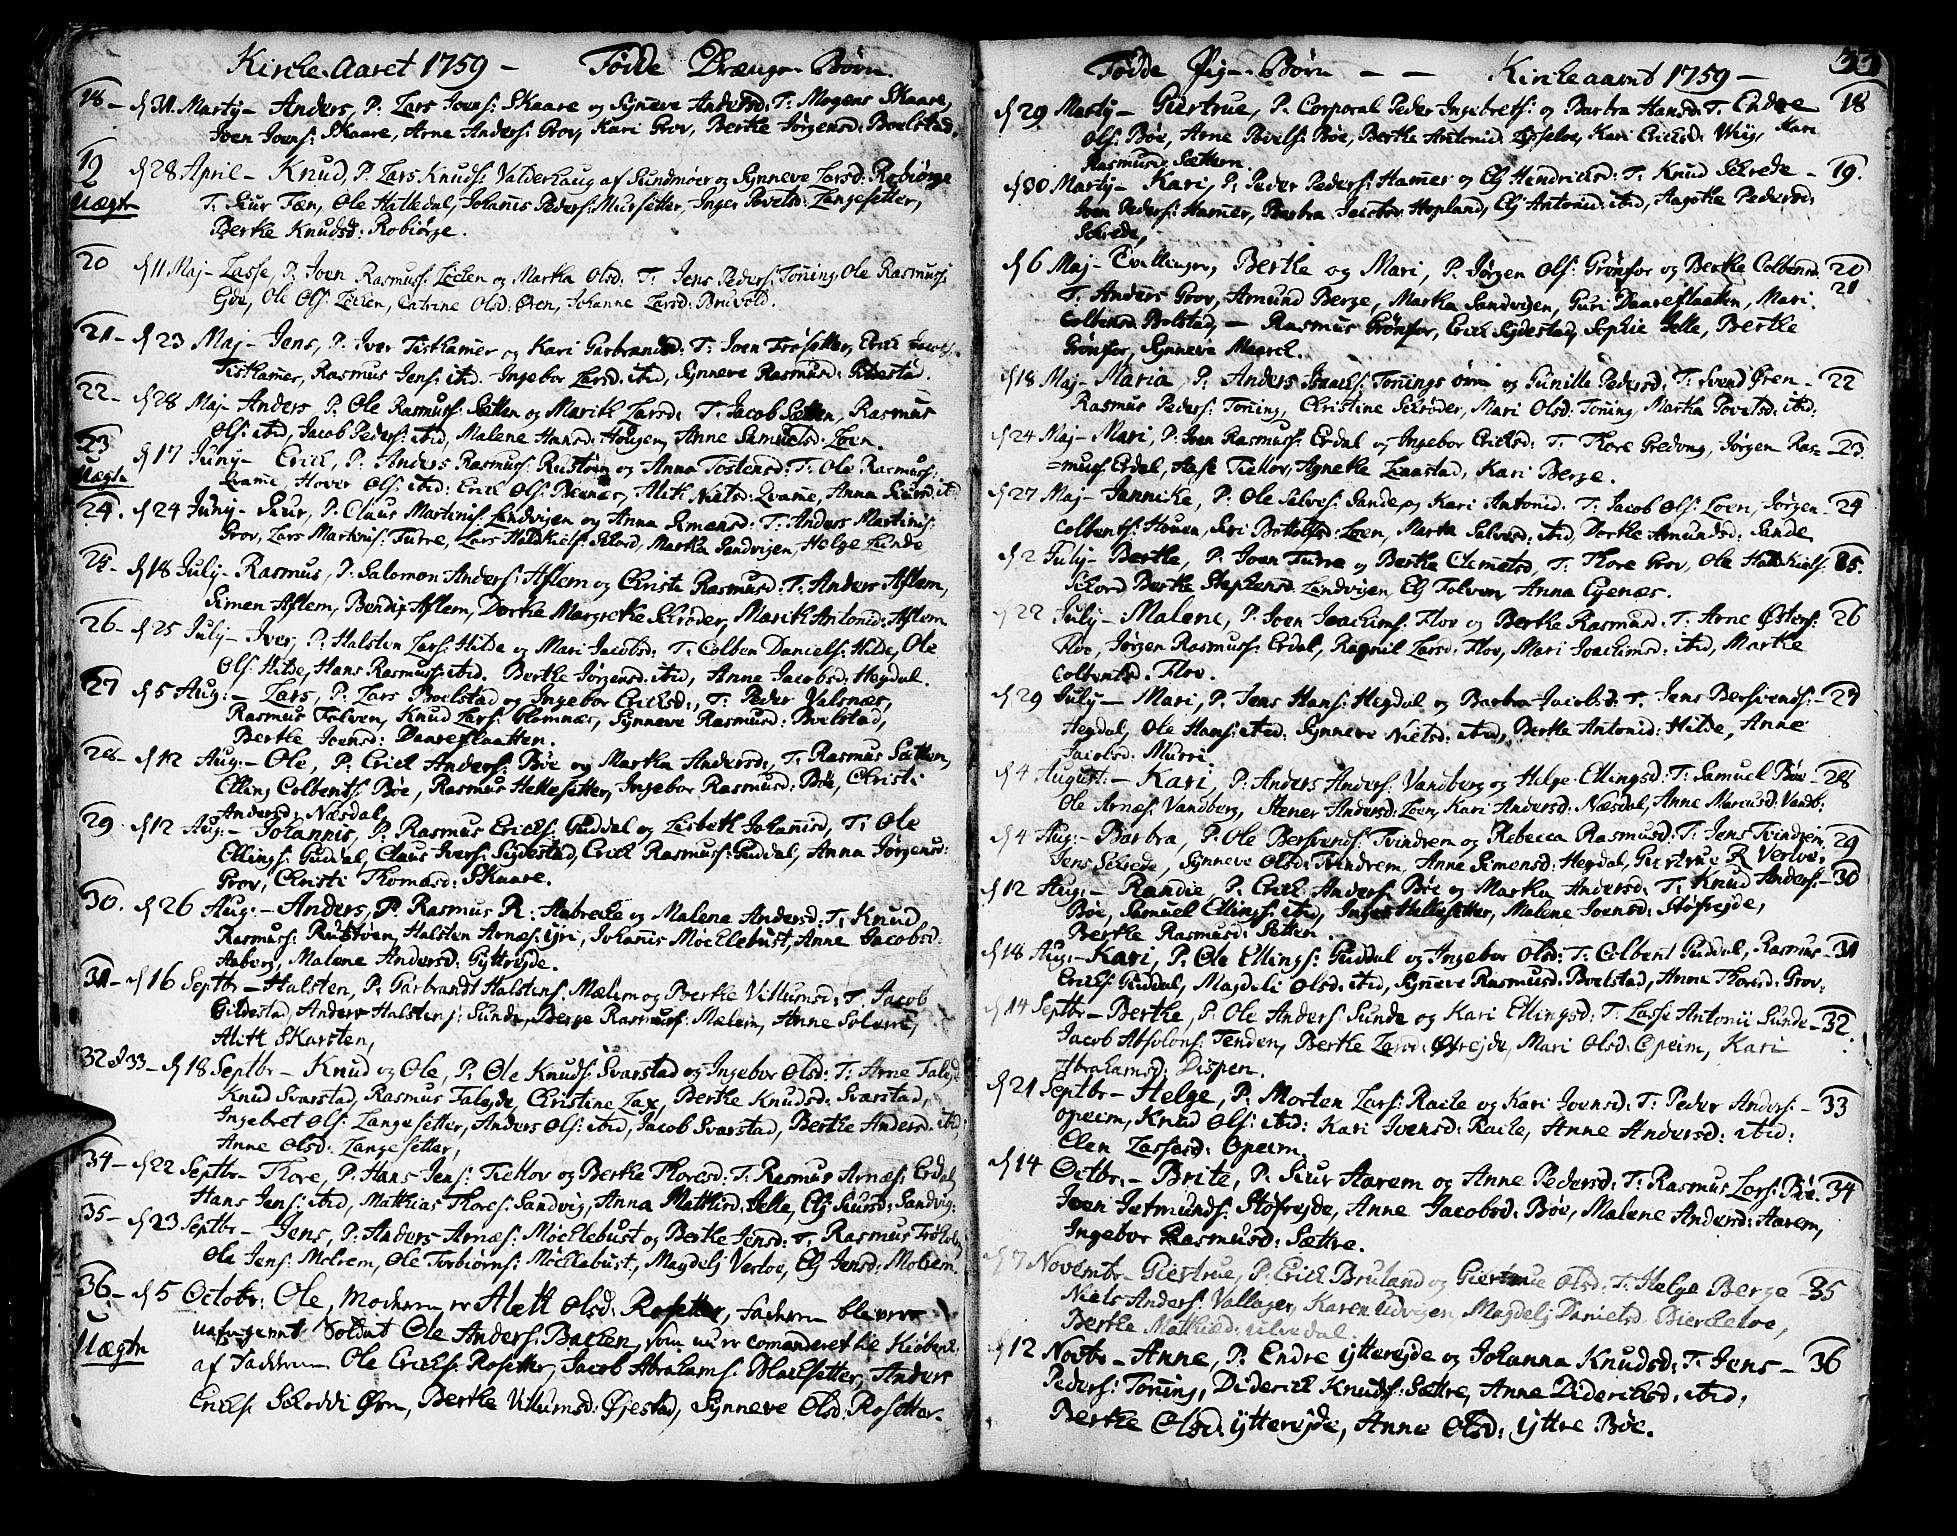 Kirke Aaret 1759 - Fødde Drænge Børn.
18 - d 31. Martÿ - Anders, P. Lars Joens: Skaare og Sÿnneve Andersd: T: Mogens Skaare,
Joen Joens: Skaare, Arne Anders: Grov, Kari Grov, Berthe Jørgensd: Boelstad.
19 d 28 April - Knud, P. Lars Knuds: Valderhaug af Sundmøer og Sÿnneve Larsd: Robiørge
Uægte T. Siur Tæn, Ole Hatledal, Johannis Peders: Mursetter, Inger Povelsd: Langesetter,
Berthe Knudsd: Robiørge.
20 d 11 Maj - Lasse, P. Joen Rasmuss: Løchen og Martha Olsd: T: Jens Peders: Toning, Ole Rasmuss:
Ejde, Ole Ols: Løchen, Catrine Olsd: Øren, Johanne Larsd: Bruvold.
21 - d 23 Maj - Jens, P. Iver Tisthamer og Kari Garbrandsd: T: Joen Frøsetter, Erich Jacobs:
Tisthamer, Rasmus Jens: ibid. Ingebor Larsd: ibid, Sÿnneve Rasmusd: Gildestad.
22 - d 28 Maj - Anders P. Ole Rasmuss: Sætten og Marith Larsd: T: Jacob Sætten, Rasmus
Ols: ibid, Jacob Peders: ibid, Malene Hansd: Hougen, Anne Samuelsd: Loen.
23 d 17 Junÿ - Erich, P. Anders Rasmuss: Rustøen og Anna Tostensd: T: Ole Rasmuss:
Uægte Qvame, Hover Ols: ibid: Erich Ols: Bernes, Alith Nielsd: Qvame, Anna Siursd: ib:
24. d 24 Junÿ - Siur, P. Claus Martinis: Sandvigen og Anna Simensd: T. Anders Martinis:
Grov, Lars Martinis: Turre, Lars Haldkiels: Skord, Martha Sandvigen, Helge Sunde
25 - d 18 Julÿ - Rasmus, P. Salomon Anders: Aflem og Christi Rasmusd: T. Anders Aflem,
Simen Aflem, Berdis Aflem, Dorthe Margrethe Schrøder, Marith Antonid: Aflem
26 - d 25 Julÿ - Iver, P. Halsten Lars: Hilde og Mari Jacobsd: T. Colben Daniels: Hilde, Ole
Ols: Hilde, Hans Rasmus: ibid. Berthe Jørgensd: ibid, Anne Jacobsd: Hegdal.
27 d 5 Aug: - Lars, P. Lars Boelstad og Ingebor Erichsd:, T: Peder Valsnæs,
Rasmus Folven, Knud Lars: Glomnæs, Sÿnneve Rasmusd: Boelstad,
Berthe Joensd: Daareflaatten.
28 - d 12 Aug: - Ole, P: Erich Anders: Bøe og Martha Andersd:, T: Rasmus Sætten,
Elling Colbents: Bøe, Rasmus Hellesetter, Ingebor Rasmusd: Bøe, Christi
Andersd: Næsdal,
29 - d 12 Aug: - Johannis, P. Rasmus Erichs: Guddal og Lisbeth Johanisd, T: Ole
Ellings: Guddal, Claus Ivers: Sigdestad, Erich Rasmuss: Guddal, Anna Jørgensd:
Grov, Christi Thomasd: Skaare.
30. d 26 Aug: - Anders, P. Rasmus R: Aabrecke og Malene Andersd: T: Knud
Rasmuss: Rustøen, Halsten Arnes: Yri, Johanis Møchlebust, Anne Jacobsd:
Aaberg, Malene Andersd: Gÿttrejde.
31 - d 16 Septbr - Halsten, P: Garbrandt Halstens: Mælem og Berthe Villumsd: T. Jacob
Gildestad, Anders Halstens: Sunde, Berge Rasmuss: Mælem, Anne Solvare,
Alith Skarsten,
32 & 33 - d 18 Septbr - Knud og Ole, P. Ole Knuds: Svarstad og Ingebor Olsd: T: Arne Falejde
Knud Svarstad, Rasmus Falejde, Christine Lax, Berthe Knudsd: Svarstad,
Ingebret Ols: Langesetter, Anders Ols: ibid, Jacob Svarstad, Berthe Andersd: ibid,
Anne Olsd: Langesetter,
34 - d 22 Septbr - Thore, P: Hans Jens: Tiettov og Berthe Thoresd: T: Rasmus Arnæs: Erdal,
Hans Jens: ibid, Mathias Thores: Sandvig, Anna Mathisd: Selle, Elj Siursd: Sandvig:
35 - d 23 Septbr - Jens, P: Anders Arnæs: Møchlebust og Berthe Jensd: T. Rasmus Frøholm,
Ole Jens: Molrem, Ole Torbiørns: Møchlebust, Magdelj Verlve, Elj Jensd: Molrem.
36 - d 5 Octobr: Ole, Moderen er Aleth Olsd: Rosetter, Faderen blev
Uægte Soldat Ole Anders: Bachen, som nu er comanderet til Kiøbenh:
af Fadderen Ole Erichs: Rosetter, Jacob Abrahams: Blachsetter, Anders
Erichs: Øren, Berthe Villumsd: Øjestad, Sÿnneve Olsd: Rosetter.
Fødde Pige-Børn - - Kirkeaaret 1759 - 33
d 29 Martÿ - Giertrue, P. Corporal Peder Ingebrets: og Barbra Hansd: T. Endre 18
Ols: Bøe, Arne Povels: Bøe, Berthe Antonid: Lofseløe, Kari Erichsd: Wiig, Kari
Rasmusd: Sættern.
d 30 Martÿ - Kari, P: Peder Peders: Hamer og Elj Hendrichsd: T. Knud Schrede - 19.
Joen Peders: Hamer, Barbra Jacobsd: Hopland, Elj Antonid: ibid, Aagothe Pedersd:
Schrede,
d 6 Maj - Tvillinger, Berthe og Mari, P. Jørgen Ols: Grønfor og Berthe Colbensd: 20
T. Anders Grov, Amund Berge, Martha Sandvigen, Guri Daareflaaten, Mari 21
Colbensd: Bolstad, - Rasmus Grønfor, Erich Sigdestad, Sophie Selle, Berthe
Grønfor, Sÿnneve Maarch.
d 18 Maj - Maria, P. Anders Isaachs: Tonings øren og Gunille Pedersd: T: Svend Øren - 22
Rasmus Peders: Toning, Christine Schrøder, Mari Olsd: Toning, Martha Povelsd: ibid:
d 24 Maj - Mari, P. Joen Rasmuss: Erdal og Ingebor Erichsd: T. Thore Gredung, Jørgen Ras= 23
=muss: Erdal, Aase Tiettov, Agnethe Liaastad, Kari Berge.
d 27 Maj - Jannike, P: Ole Salves: Sande, og Kari Antonid: T: Jacob Ols: Loen, Jørgen - 24
Colbents: Houen, Siri Bottolfsd: Loen, Marta Salvesd: ibid, Dorthe Amundsd: Sande
d 2 Julÿ - Berthe, P: Joen Turre og Berthe Clemetsd, T. Thore Grov, Ole Haldkiels: 25.
Schord, Berthe Stephensd: Sandvigen, Elj Folven, Anna Egenæs.
d 22 Julÿ - Malene, P. Joen Joachims: Flov og Berthe Rasmusd: T. Arne Østens: 26
Floe, Jørgen Rasmuss: Erdal, Ragnil Larsd: Flov, Mari Joachimsd: ibid, Marthe
Colbentsd: Flov.
d 29 Julÿ - Mari, P. Jens Hans: Hegdal og Barbra Jacobsd: T. Jens Bersvends: - 27
Hegdal, Ole Hans: ibid: Sÿnneve Nielsd: ibid, Berthe Antonid: Hilde, Anne
Jacobsd: Murri.
d 4 August: - Kari, P. Anders Anders: Vandberg og Helge Ellingsd: T: Samuel Bøe - 28
Ole Arnæs: Vandberg, Stener Anders: Loen, Kari Andersd: Næsdal, Anne Marcusd: Vandb:
d 4 Aug: - Barbra, P. Ole Bersvends: Tvindrem og Rebecca Rasmusd: T: Jens Tvindrem, 29
Jens Schrede, Sÿnneve Olsd: Tvindrem, Anne Simensd: Hegdal, Giertrue R Verlve,
d 12 Aug: - Randie, P. Erich Anders: Bøe og Martha Andersd: T: Knud Anders: - 30
Bøe, Samuel Ellings: ibid, Inger Hellesetter, Malene Joensd: Støfrejde,
Berthe Rasmusd: Setten.
d 18 Aug: - Kari, P. Ole Ellings: Guddal og Ingebor Olsd: T: Colbent Guddal, Rasmus - 31
Erichs: Guddal, Magdeli Olsd: ibid, Sÿneve Rasmusd: Boelstad, Anne Thoresd: Grov,
d 14 Septbr - Berthe, P. Ole Anders: Sunde og Kari Ellingsd: T. Lasse Antonii Sunde - 32.
Jacob Absolons: Tenden, Berthe Larsd: Øvrejde, Mari Olsd: Opeim, Kari
Abrahamsd: Dispen.
d 21 Septbr - Helge, P. Morten Lars: Rache og Kari Ivensd: T: Peder Anders: - 33
Opeim, Knud Ols: ibid: Kari Ivensd: Rache, Anne Andersd: ibid:
Elen Lassesd: Opeim,
d 14 Octbr: - Brite, P. Siur Aarem og Anne Pedersd: T: Rasmus Lars: Bøe - 34
Joen Jetmunds: Støfrejde, Anne Jacobsd: Bøe, Malene Andersd: Aarem,
Ingebor Rasmusd: Sættre.
d 7 Novembr - Giertrue, P. Erich Bruland og Giertrue Olsd: T: Helge Berge - 35
Niels Anders: Vallager, Karen Udvigen, Magdelj Danielsd: Bierchloe,
Berthe Mathisd:
d 12 Novbr - Anne, P: Endre Ytterejde og Johanna Knudsd: T: Jens - 36
Peders: Toning, Diderich Knuds: Sættre, Anne Diderichsd: ibid,
Berthe Olsd: Ytterejde, Anne Olsd: Yttre Bøe.